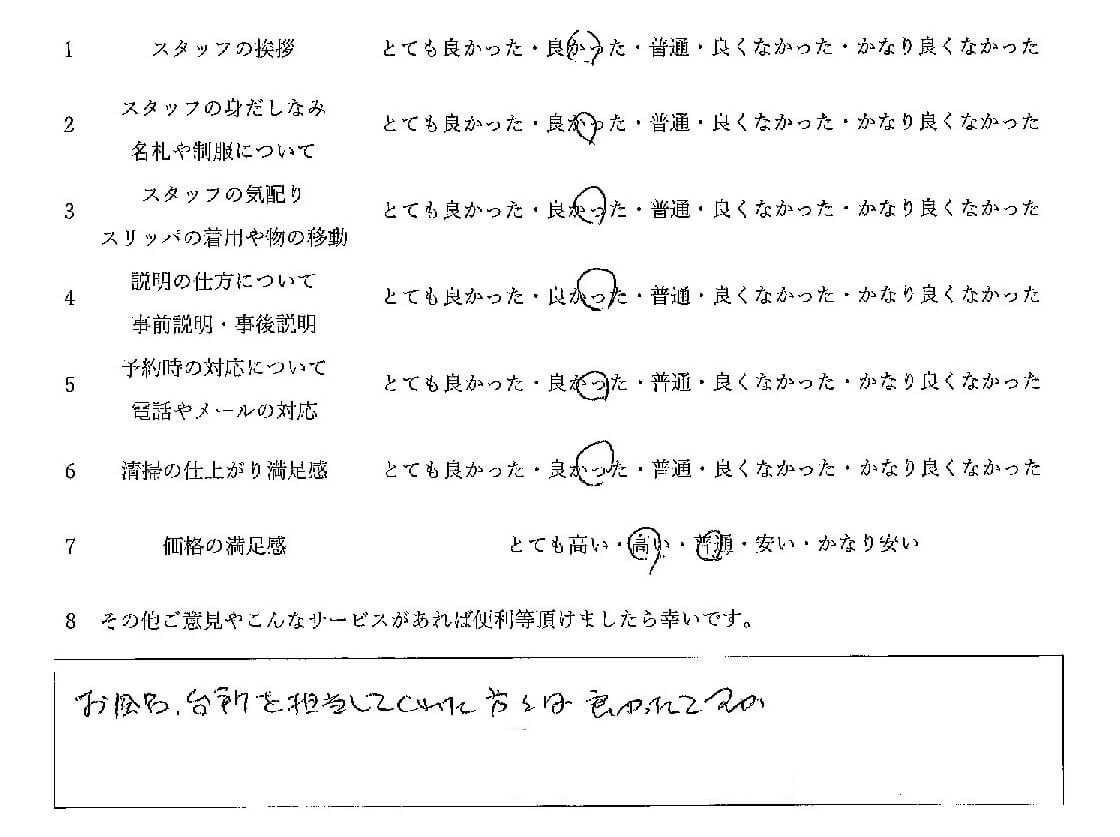 1 スタッフの挨拶 とても良かった・良かった・普通・良くなかった・かなり良くなかった
スタッフの身だしなみ
2 とても良かった・良かった・普通・良くなかった・かなり良くなかった
名札や制服について
スタッフの気配り
3 とても良かった・良かった・普通・良くなかった・かなり良くなかった
スリッパの着用や物の移動
説明の仕方について
4 とても良かった・良かった・普通・良くなかった・かなり良くなかった
事前説明・事後説明
予約時の対応について
5 とても良かった・良かった・普通・良くなかった・かなり良くなかった
電話やメールの対応
6 清掃の仕上がり満足感 とても良かった・良かった・普通・良くなかった・かなり良くなかった
7 価格の満足感 とても高い・高い・普通・安い・かなり安い
8 その他ご意見やこんなサービスがあれば便利等頂けましたら幸いです。
お風呂、台所を担当してくれた方々は良かったですが